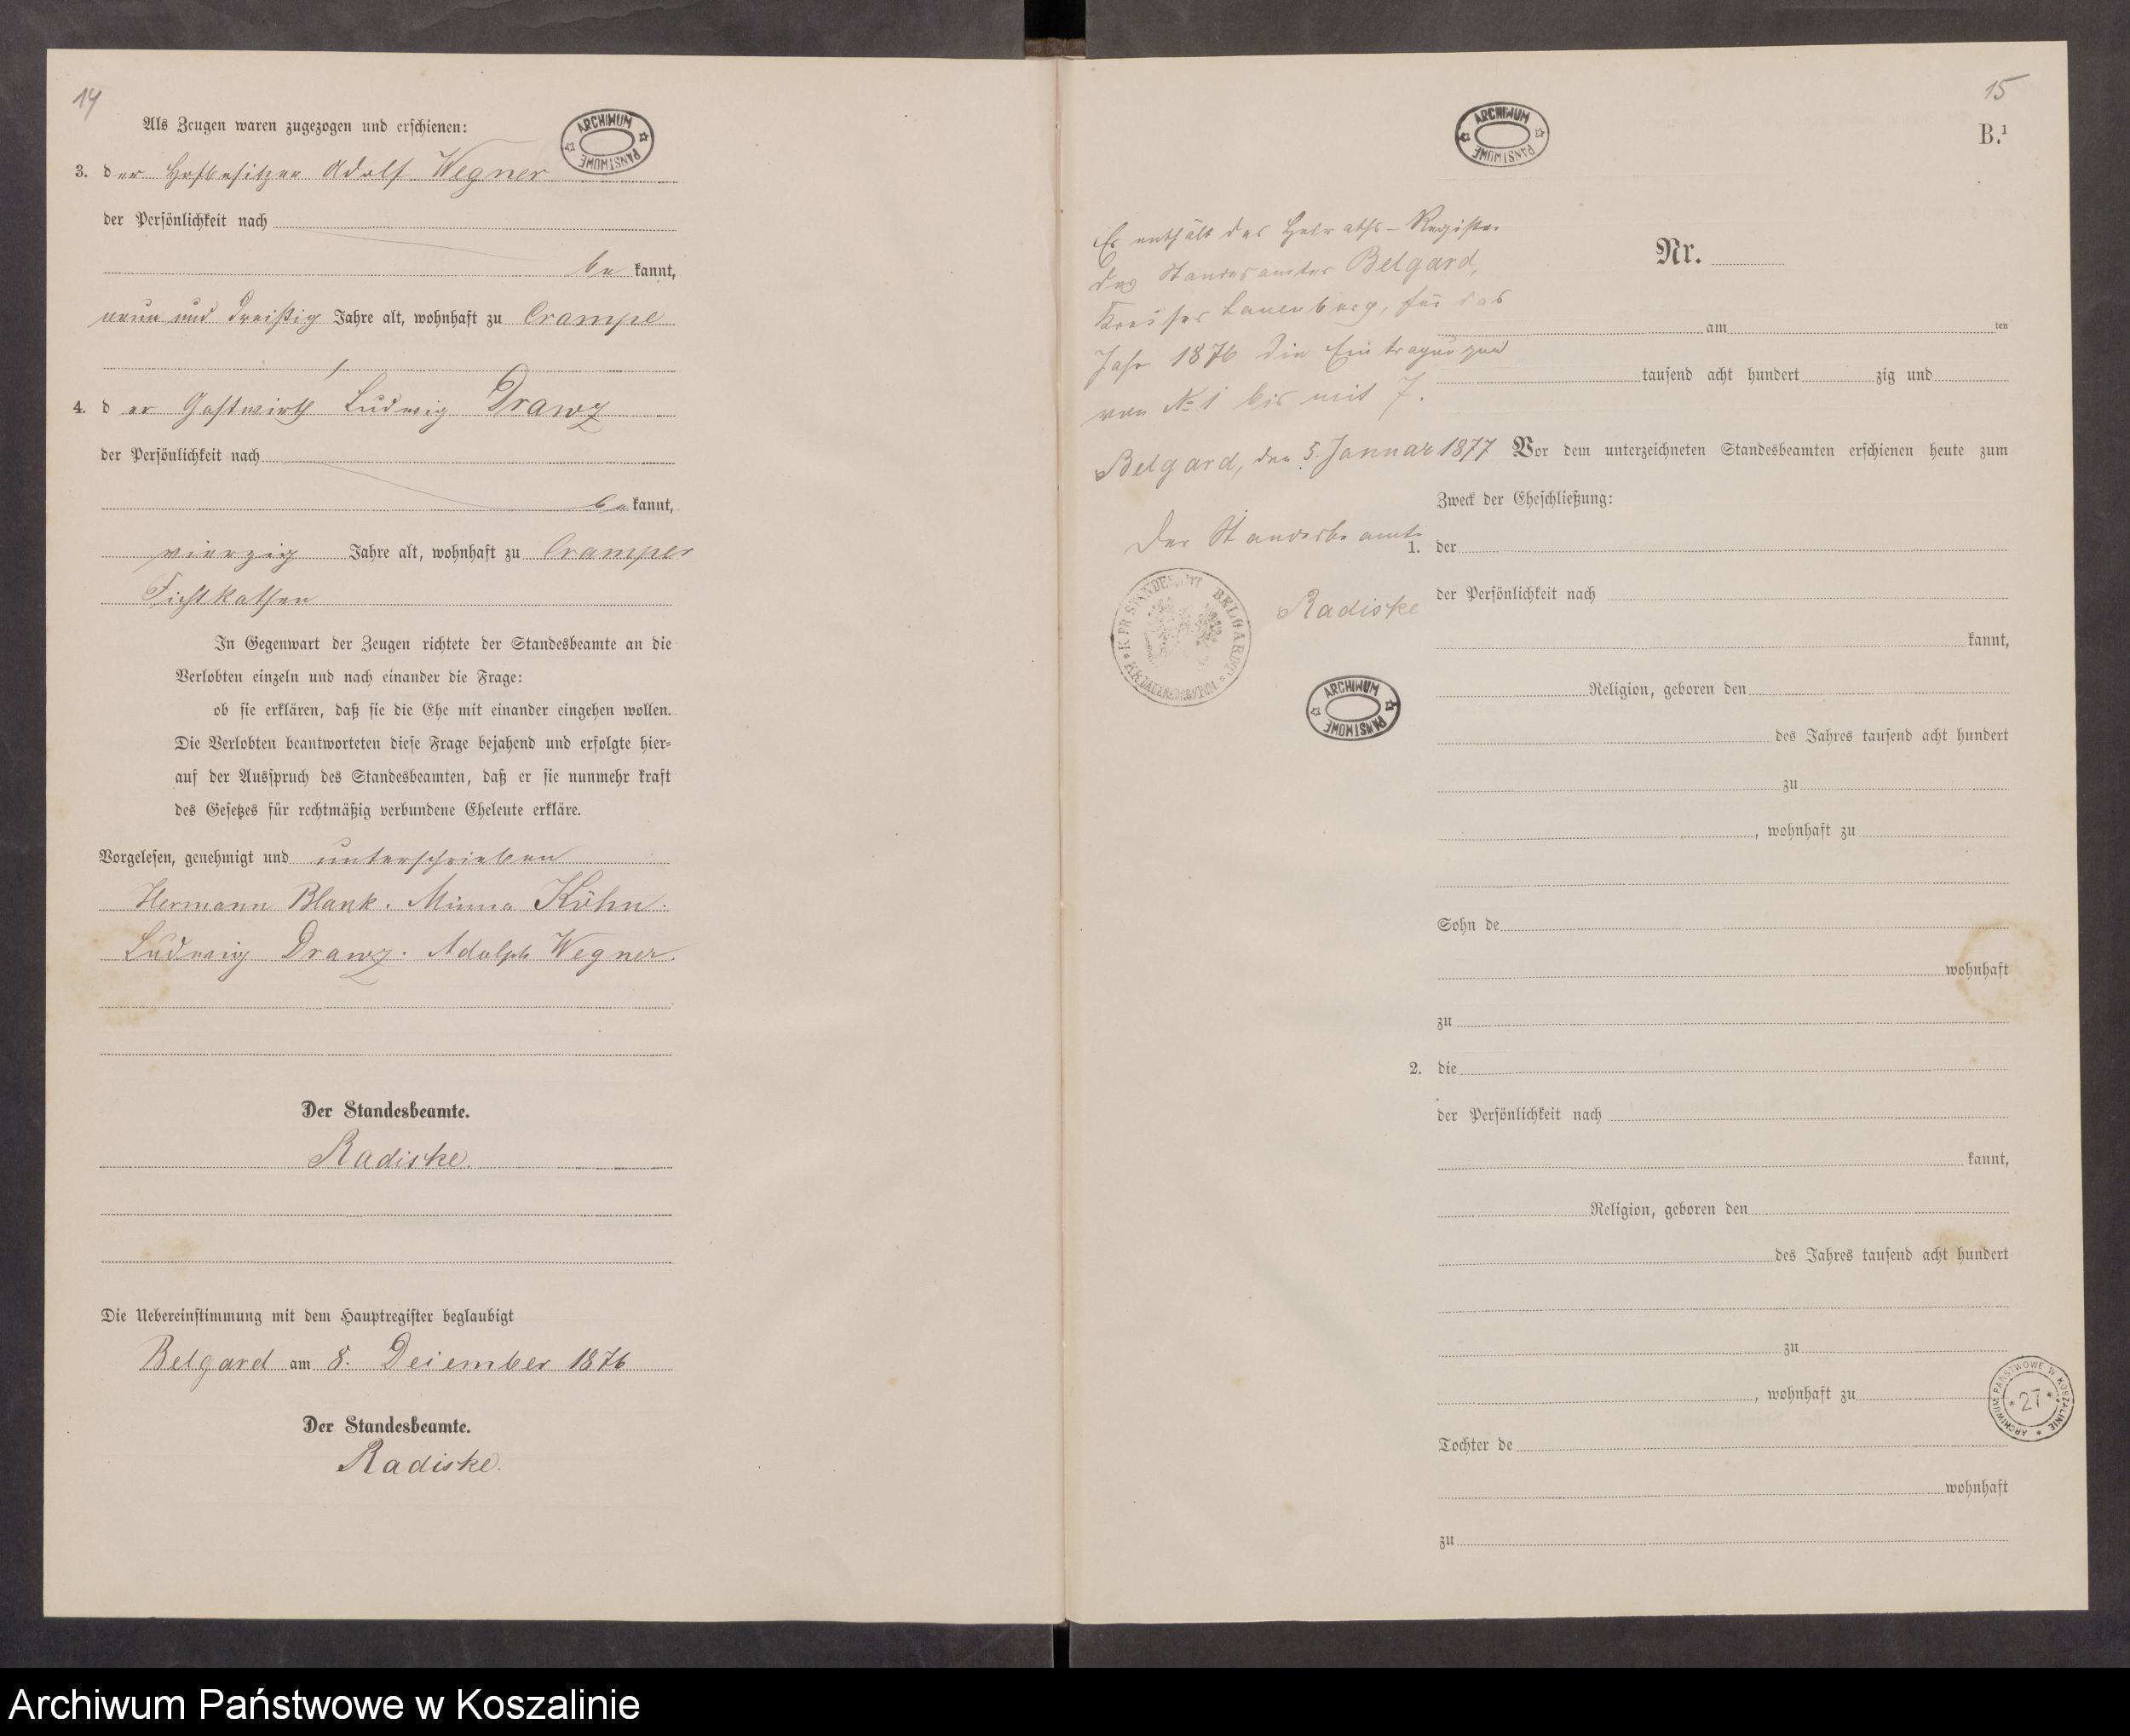 14
Als Zeugen waren zugezogen und erschienen:
ARCHIWUM PAŃSTWOWE
3. der Hofbesitzer Adolf Wegner
der Persönlichkeit nach
be kannt,
neun und dreißig Jahre alt, wohnhaft zu Crampe
4. d er Gastwirth Ludwig Drawz
der Persönlichkeit nach
be kannt,
vierzig Jahre alt, wohnhaft zu Cramper
Fichtkathen
In Gegenwart der Zeugen richtete der Standesbeamte an die
Verlobten einzeln und nach einander die Frage:
ob sie erklären, daß sie die Ehe mit einander eingehen wollen.
Die Verlobten beantworteten diese Frage bejahend und erfolgte hier=
auf der Ausspruch des Standesbeamten, daß er sie nunmehr kraft
des Gesetzes für rechtmäßig verbundene Eheleute erkläre.
Vorgelesen, genehmigt und unterschrieben
Hermann Blank. Minna Köhn.
Ludwig Drawz. Adolph Wegner.
Der Standesbeamte.
Radiske.
Die Uebereinstimmung mit dem Hauptregister beglaubigt
Belgard am 8. Dezember 1876
Der Standesbeamte.
Radiske.
15
ARCHIWUM PAŃSTWOWE
B.¹
Es enthält das Heiraths-Register
des Standesamtes Belgard,
Kreises Lauenburg, für das
Jahr 1876 die Eintragungen
von № 1 bis mit 7.
Belgard, den 5. Januar 1877
Der Standesbeamte
Radiske
K. PR. STANDESAMT BELGARD KR. LAUENBURG I/POM.
ARCHIWUM PAŃSTWOWE
Nr.
am ten
tausend acht hundert zig und
Vor dem unterzeichneten Standesbeamten erschienen heute zum
Zweck der Eheschließung:
1. der
der Persönlichkeit nach
kannt,
Religion, geboren den
des Jahres tausend acht hundert
zu
, wohnhaft zu
Sohn de
wohnhaft
zu
2. die
der Persönlichkeit nach
kannt,
Religion, geboren den
des Jahres tausend acht hundert
zu
, wohnhaft zu
ARCHIWUM PAŃSTWOWE W KOSZALINIE * 27 *
Tochter de
wohnhaft
zu
Archiwum Państwowe w Koszalinie